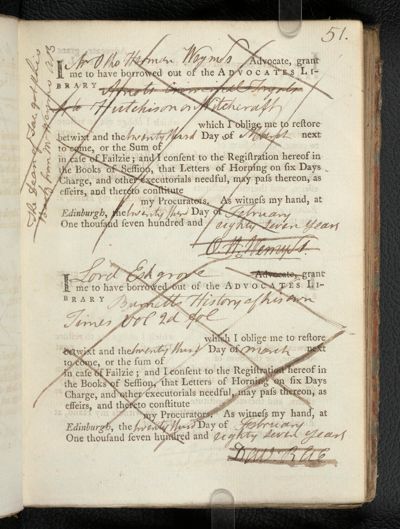 51.
I Mr Otho Herman Wemyss Advocate, grant
me to have borrowed out of the ADVOCATES LI-
BRARY
Hutchison on Witchcraft
which I oblige me to restore
betwixt and the twenty third Day of March next
to come, or the Sum of
in case of Failzie; and I consent to the Registration hereof in
the Books of Session, that Letters of Horning on six Days
Charge, and other executorials needful, may pass thereon, as
effeirs, and thereto constitute
my Procurators. As witness my hand, at
Edinburgh, the twenty third Day of February
One thousand seven hundred and eighty seven Years
O. H. Wemyss.
I Lord Eskgrove Advocate, grant
me to have borrowed out of the ADVOCATES LI-
BRARY Burnetts History of his own
Times Vol 2d fol
which I oblige me to restore
betwixt and the twenty third Day of March next
to come, or the sum of
in case of Failzie; and I consent to the Registration hereof in
the Books of Session, that Letters of Horning on six Days
Charge, and other executorials needful, may pass thereon, as
effeirs, and thereto constitute
my Procurators. As witness my hand, at
Edinburgh, the twenty third Day of February
One thousand seven hundred and eighty seven Years